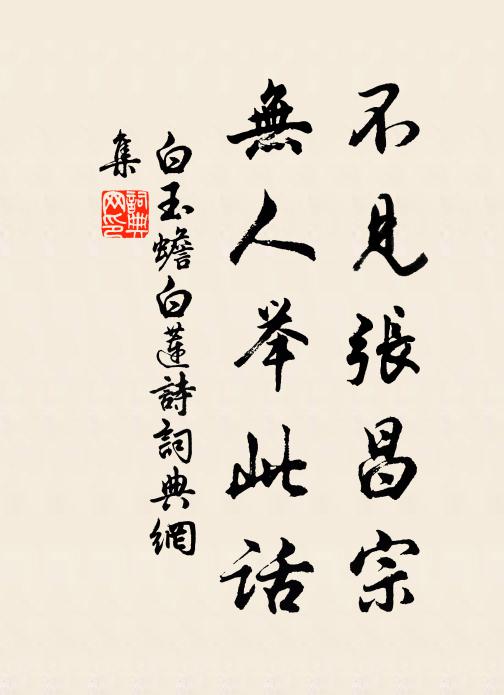 不見張昌宗
無人举此话
白玉蟾白蓮詩詞典網
集
詞典网印